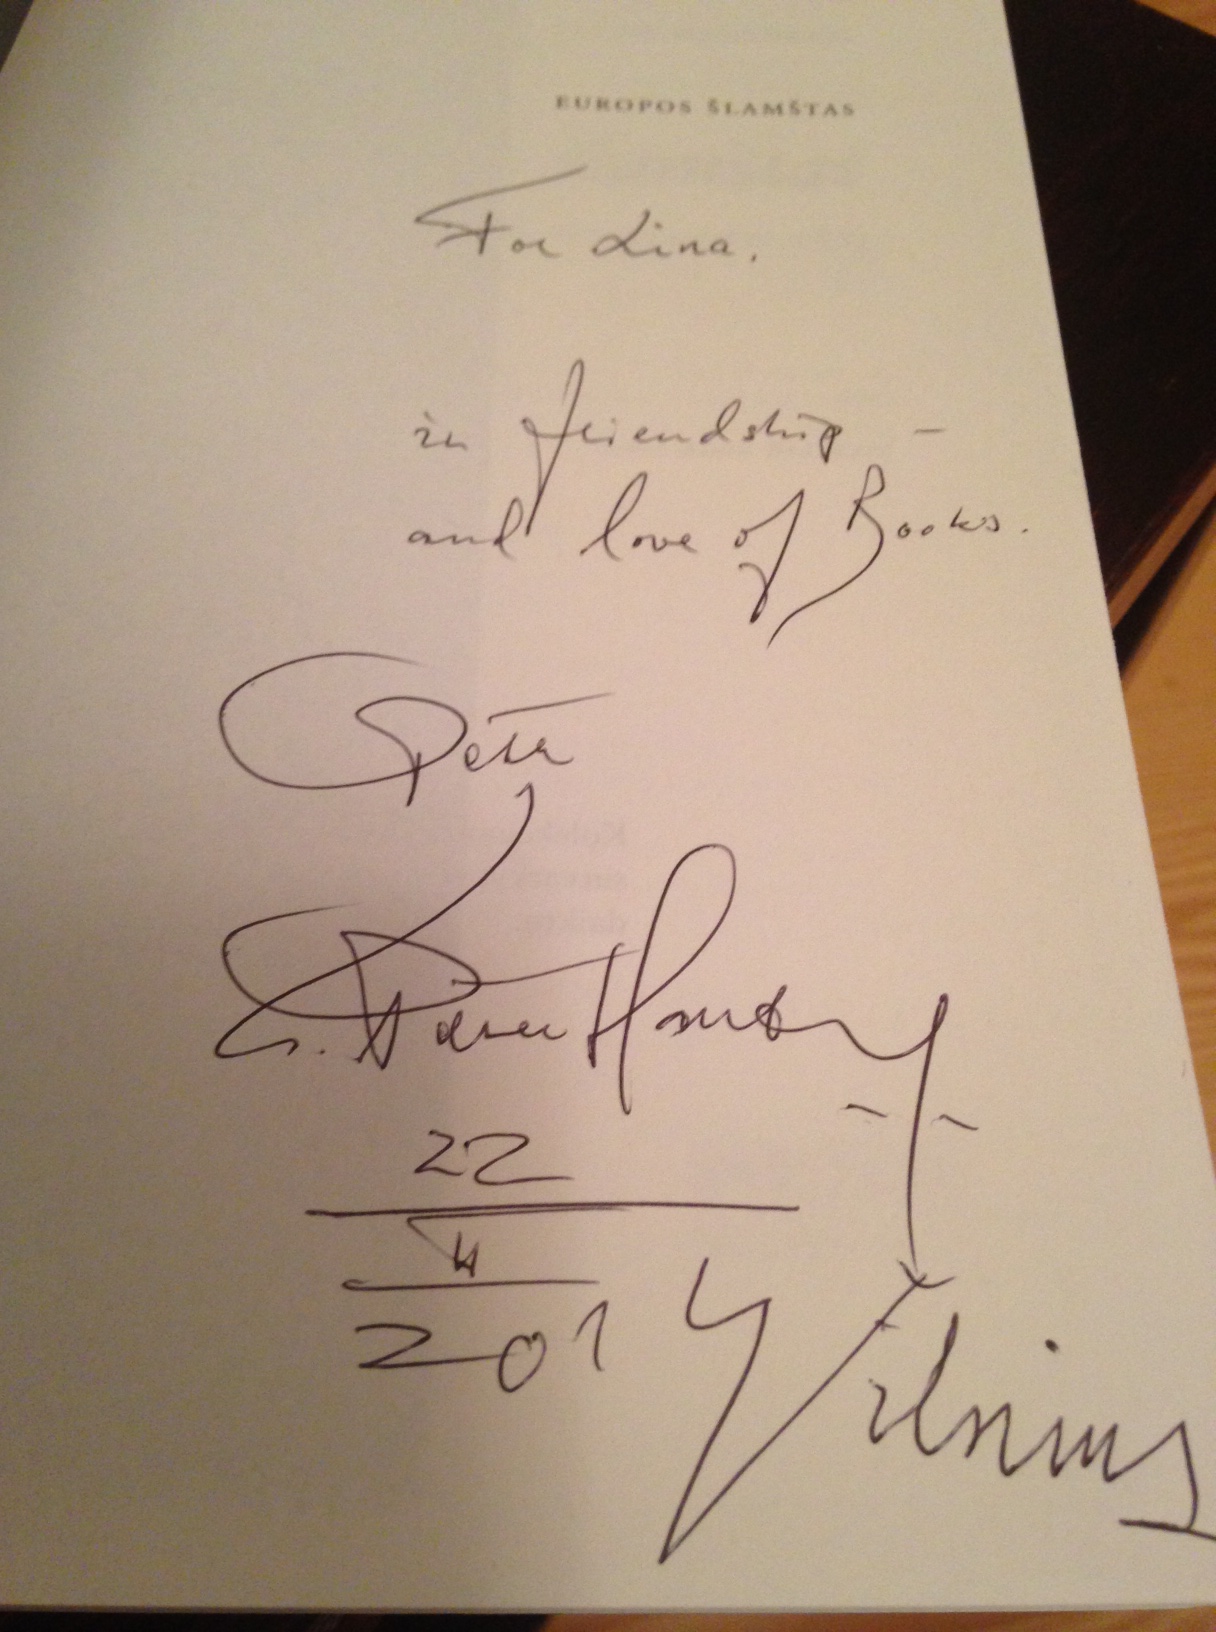 EUROPOS ŠLAMŠTAS
For Lina.
in friendship –
and love of Books.
Peter
22
2014
Vilnius